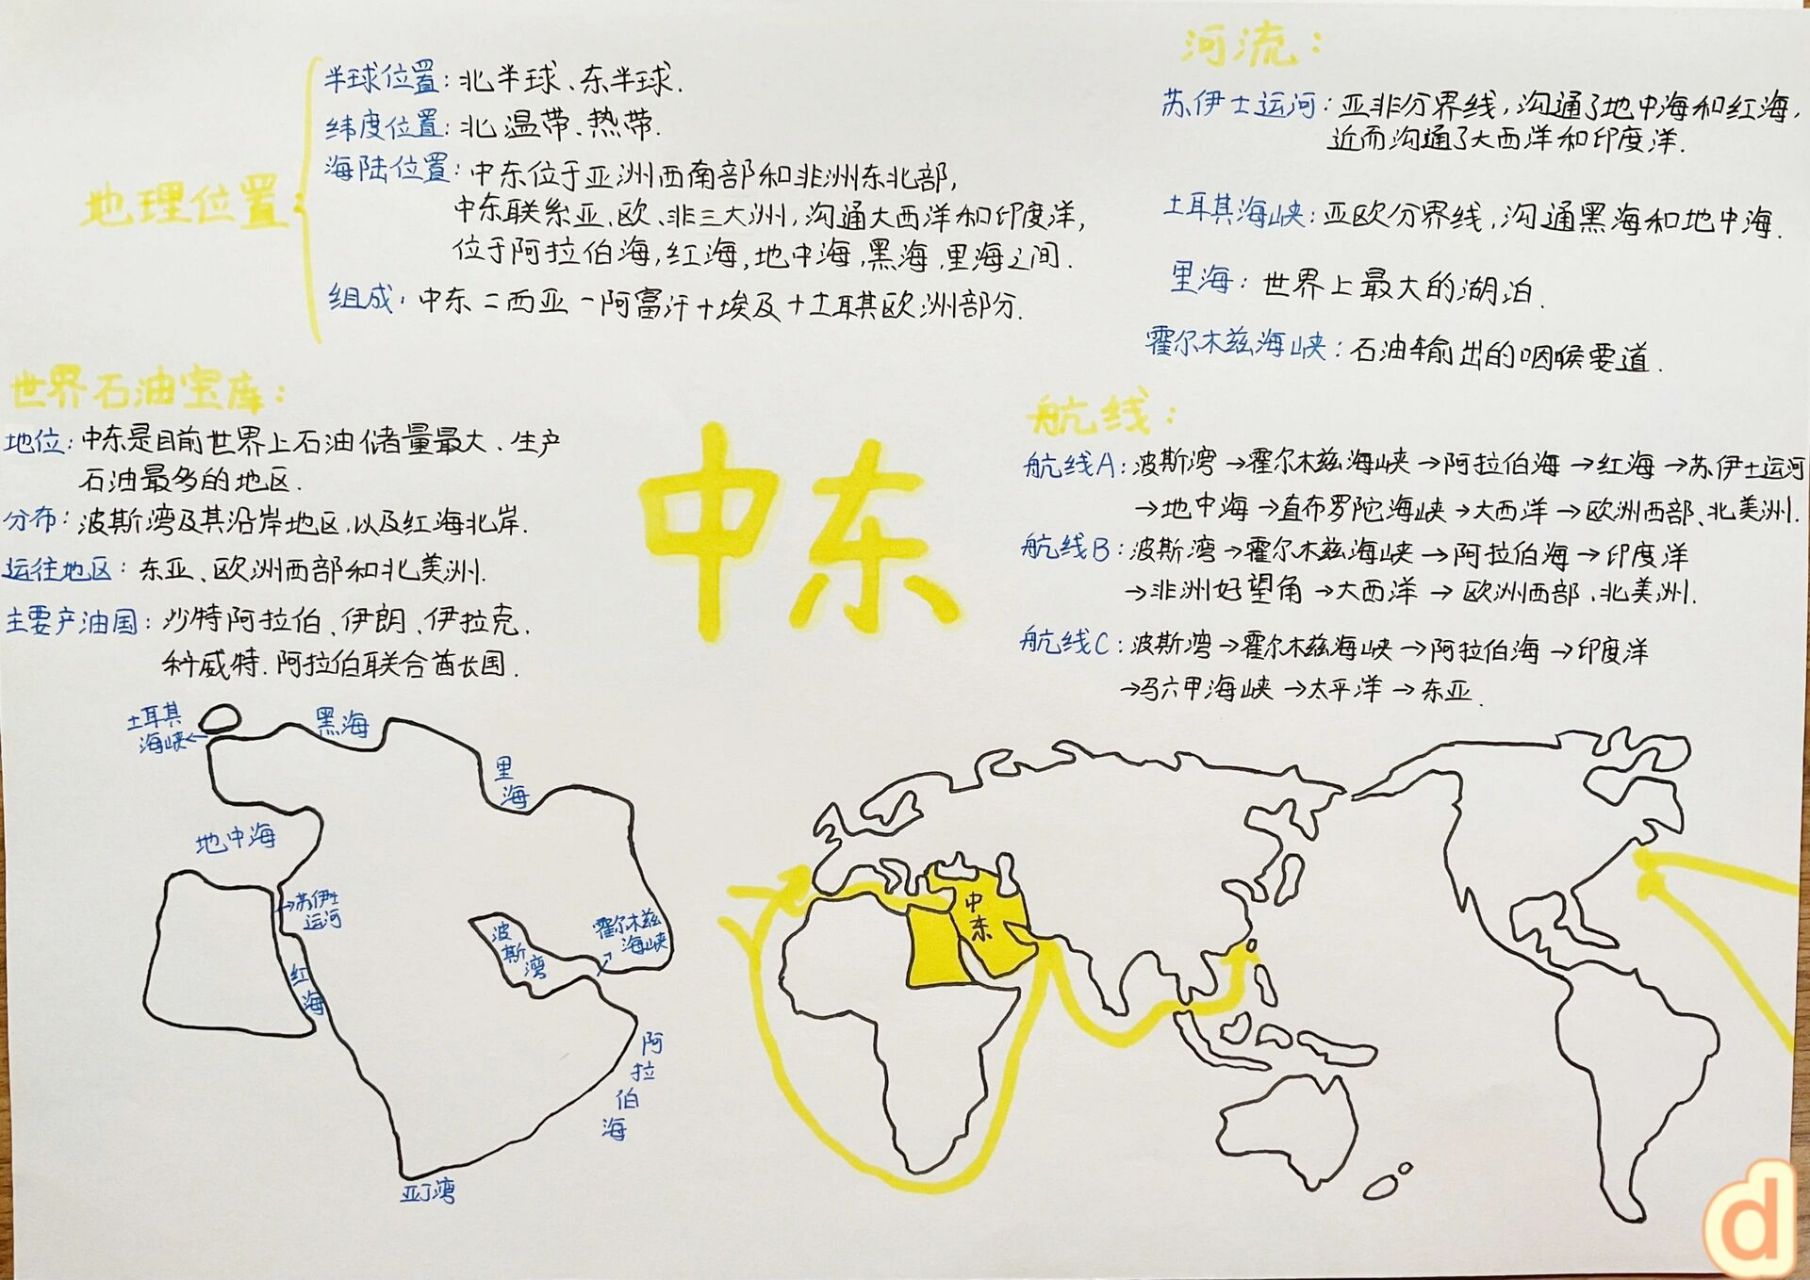 地理位置：
半球位置：北半球、东半球.
纬度位置：北温带、热带.
海陆位置：中东位于亚洲西南部和非洲东北部，
中东联系亚、欧、非三大洲，沟通大西洋和印度洋，
位于阿拉伯海，红海，地中海，黑海，里海之间.
组成：中东=西亚-阿富汗+埃及+土耳其欧洲部分.
河流：
苏伊士运河：亚非分界线，沟通了地中海和红海，
近而沟通了大西洋和印度洋.
土耳其海峡：亚欧分界线，沟通黑海和地中海.
里海：世界上最大的湖泊.
霍尔木兹海峡：石油输出的咽喉要道.
世界石油宝库：
地位：中东是目前世界上石油储量最大、生产
石油最多的地区.
分布：波斯湾及其沿岸地区，以及红海北岸.
运往地区：东亚、欧洲西部和北美洲.
主要产油国：沙特阿拉伯、伊朗、伊拉克、
科威特、阿拉伯联合酋长国.
中东
航线：
航线A：波斯湾→霍尔木兹海峡→阿拉伯海→红海→苏伊士运河
→地中海→直布罗陀海峡→大西洋→欧洲西部、北美洲.
航线B：波斯湾→霍尔木兹海峡→阿拉伯海→印度洋
→非洲好望角→大西洋→欧洲西部、北美洲.
航线C：波斯湾→霍尔木兹海峡→阿拉伯海→印度洋
→马六甲海峡→太平洋→东亚.
土耳其
海峡←
黑海
里海
地中海
→苏伊士
运河
红海
波斯湾
霍尔木兹
海峡
阿拉伯海
亚丁湾
中东
d